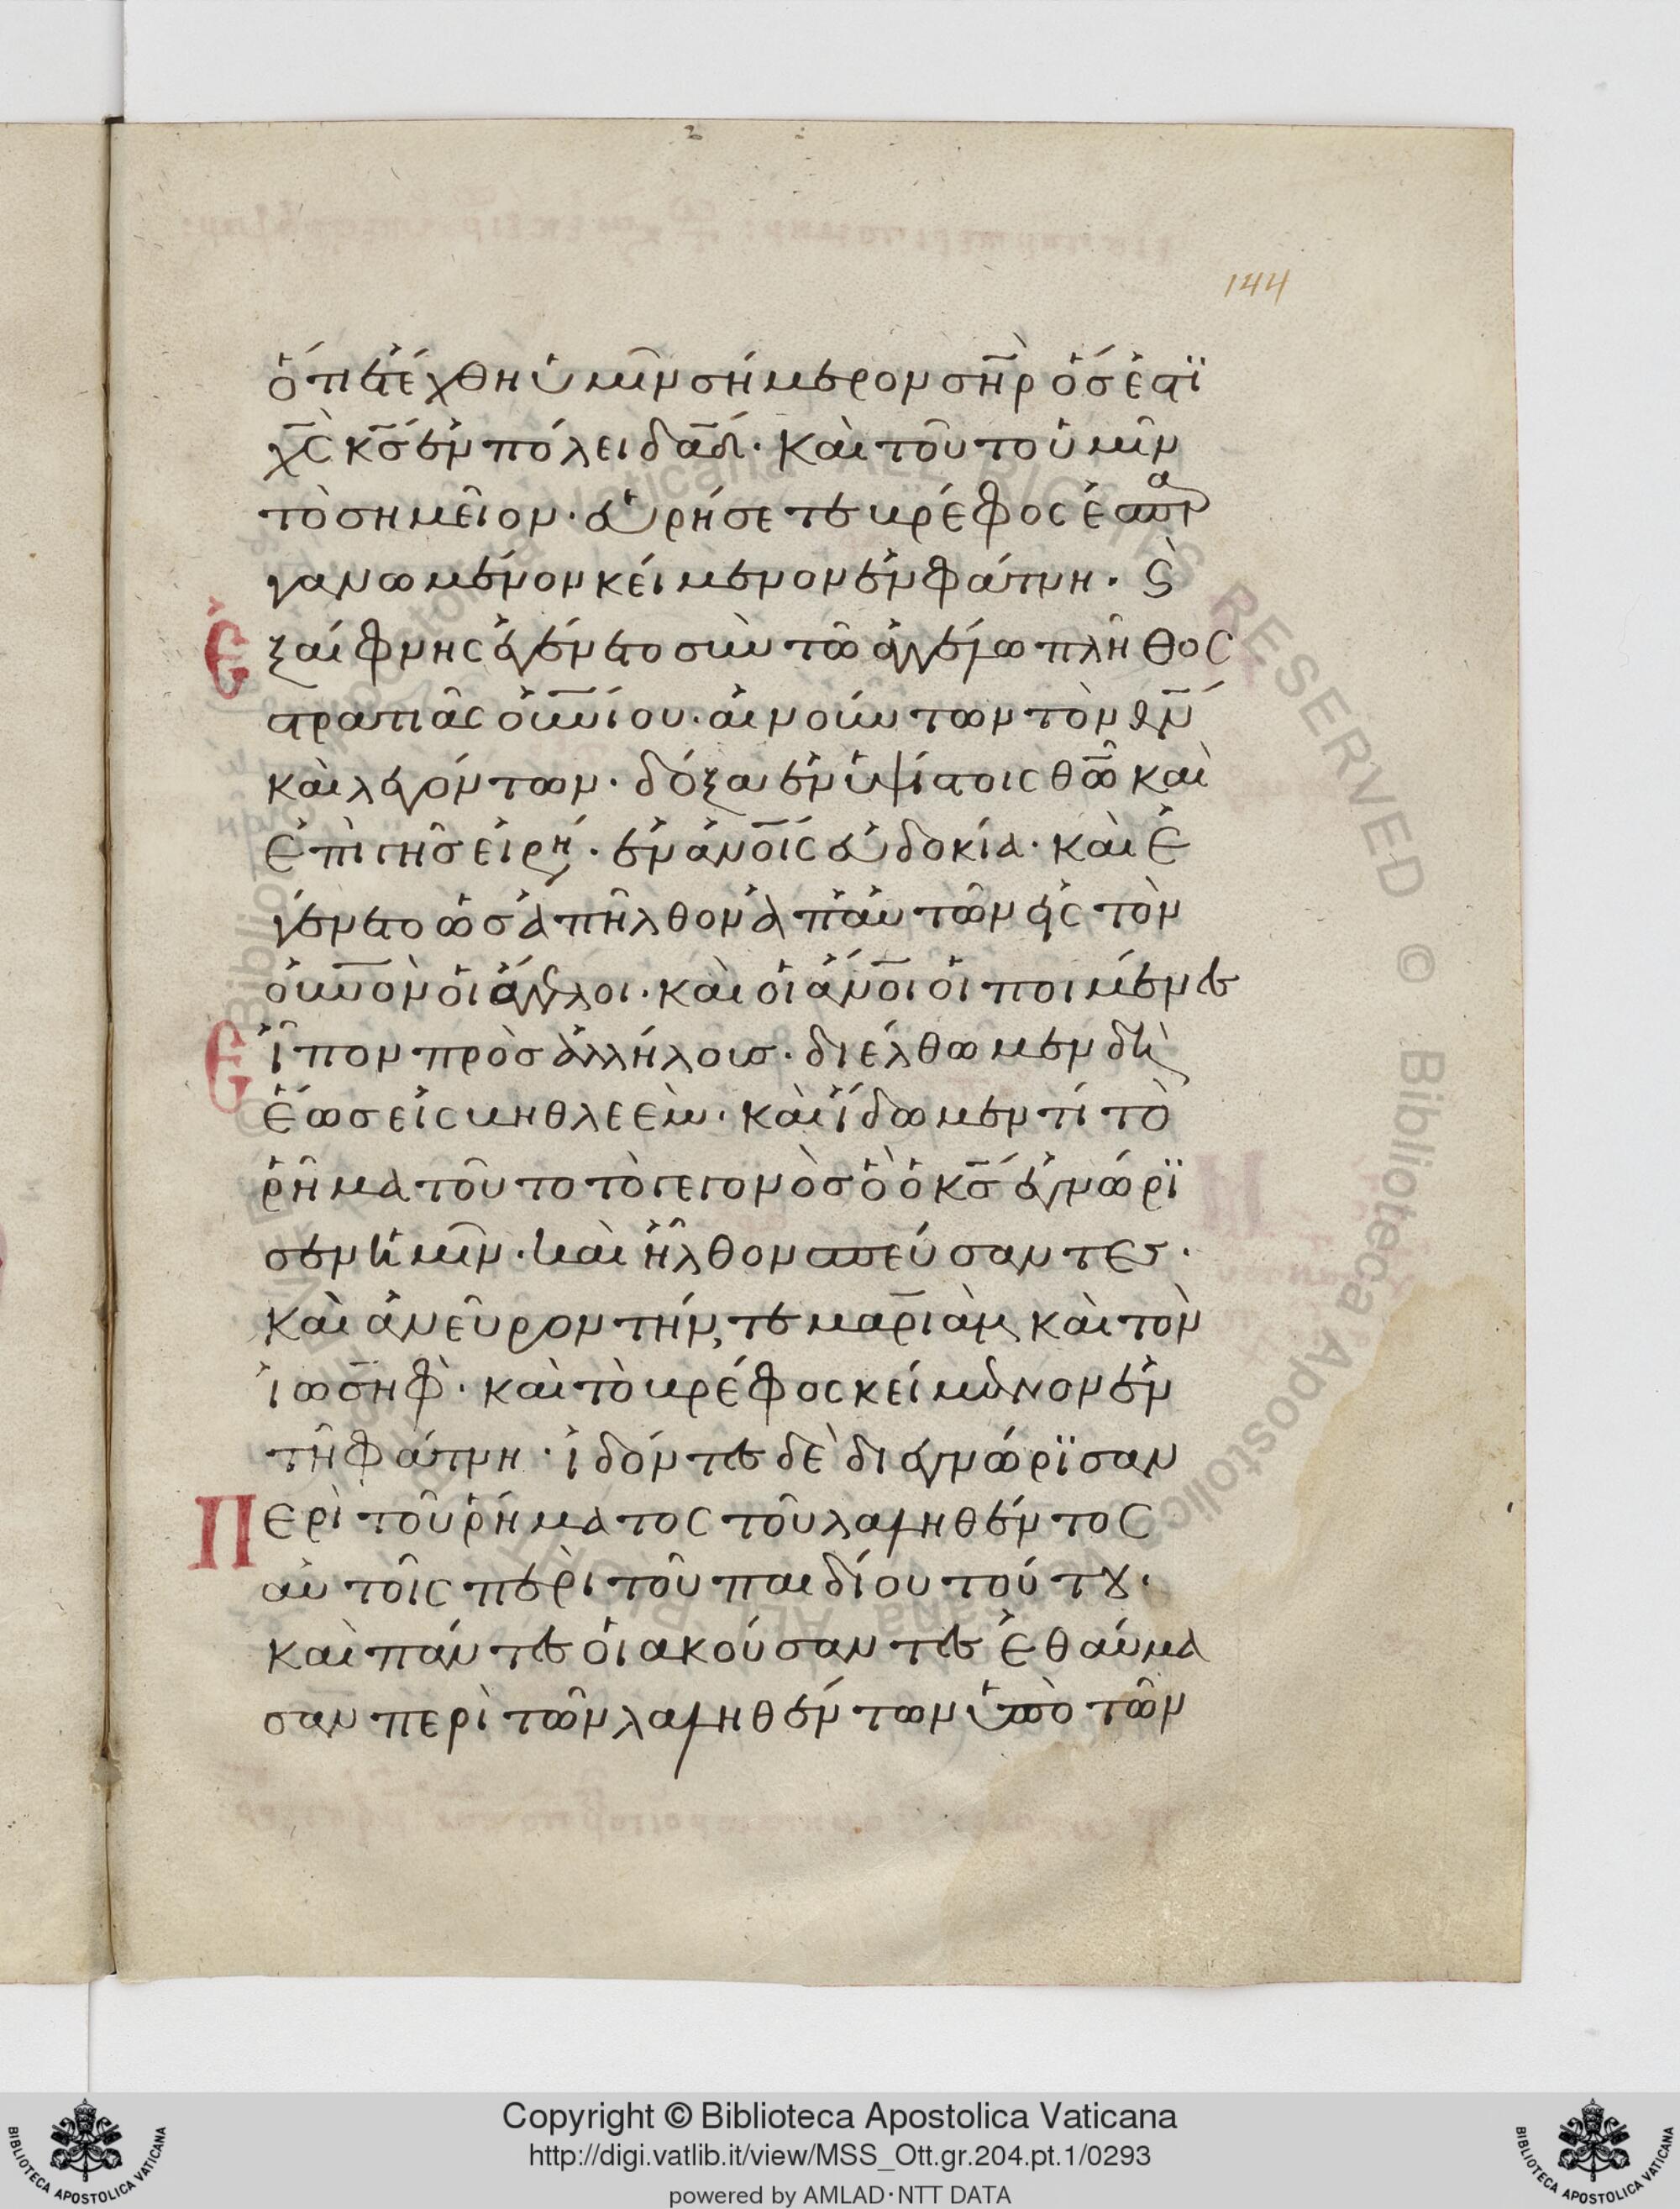 144
ὅτι ἐτέχθη ὑμῖν σήμερον σ̅η̅ρ̅ ὅς ἐστϊ
χ̅ς̅ κ̅ς̅ ἐν πόλει δα̅δ̅. καὶ τοῦτο ὑμῖν
τὸ σημεῖον. εὑρήσετε βρέφος ἐσπαρ
γανωμένον κείμενον ἐν φάτνη. ϛ̀
ἐξαίφνης ἐγένετο σὺν τῶ ἀγγέλω πλῆθος
στρατιᾶς ο̅υ̅ν̅ίου. αἰνούντων τὸν θ̅ν̅
καὶ λεγόντων. δόξα ἐν ὑψίστοις θ̅ω̅ καὶ
ἐπὶ γῆς εἰρή. ἐν ἀν̅ο̅ις εὐδοκία. καὶ ἐ
γένετο ὡς ἀπῆλθον ἀπ' αὐτῶν εἰς τὸν
ο̅υ̅ν̅ὸν οἱ ἄγγελοι. καὶ οἱ ἄν̅ο̅ι οἱ ποιμένες
εἶπον πρὸς ἀλλήλους. διέλθωμεν δὴ
ἕως εἰς βηθλεὲμ. καὶ ἴδωμεν τί τὸ
ῥῆμα τοῦτο τὸ γεγονὸς ὃ ὁ κ̅ς̅ ἐγνώρϊ
σεν ἡμῖν. καὶ ἦλθον σπεύσαντες.
καὶ ἀνεῦρον τήν, τε μαριὰμ, καὶ τὸν
ἰωσὴφ. καὶ τὸ βρέφος κείμενον ἐν
τῆ φάτνη. ἰδόντες δὲ διεγνώρϊσαν
Περὶ τοῦ ῥήματος τοῦ λαληθέντος
αὐτοῖς περὶ τοῦ παιδίου τούτου.
καὶ πάντες οἱ ἀκούσαντες ἐθαύμα
σαν περὶ τῶν λαληθέντων ὑπὸ τῶν
Copyright © Biblioteca Apostolica Vaticana
http://digi.vatlib.it/view/MSS_Ott.gr.204.pt.1/0293
powered by AMLAD·NTT DATA
BIBLIOTECA APOSTOLICA VATICANA
BIBLIOTECA APOSTOLICA VATICANA